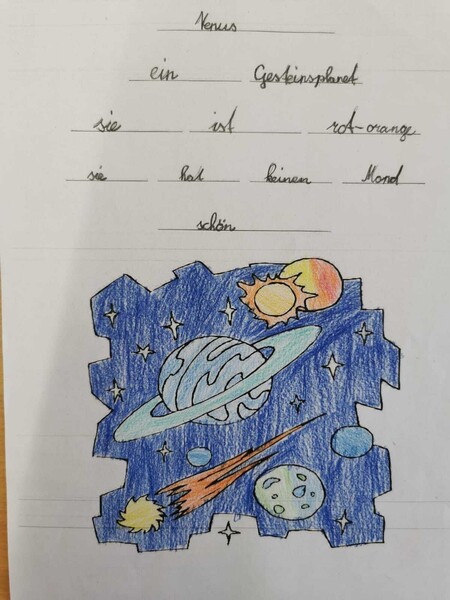 Venus
ein Gesteinsplanet
sie ist rot-orange
sie hat keinen Mond
schön